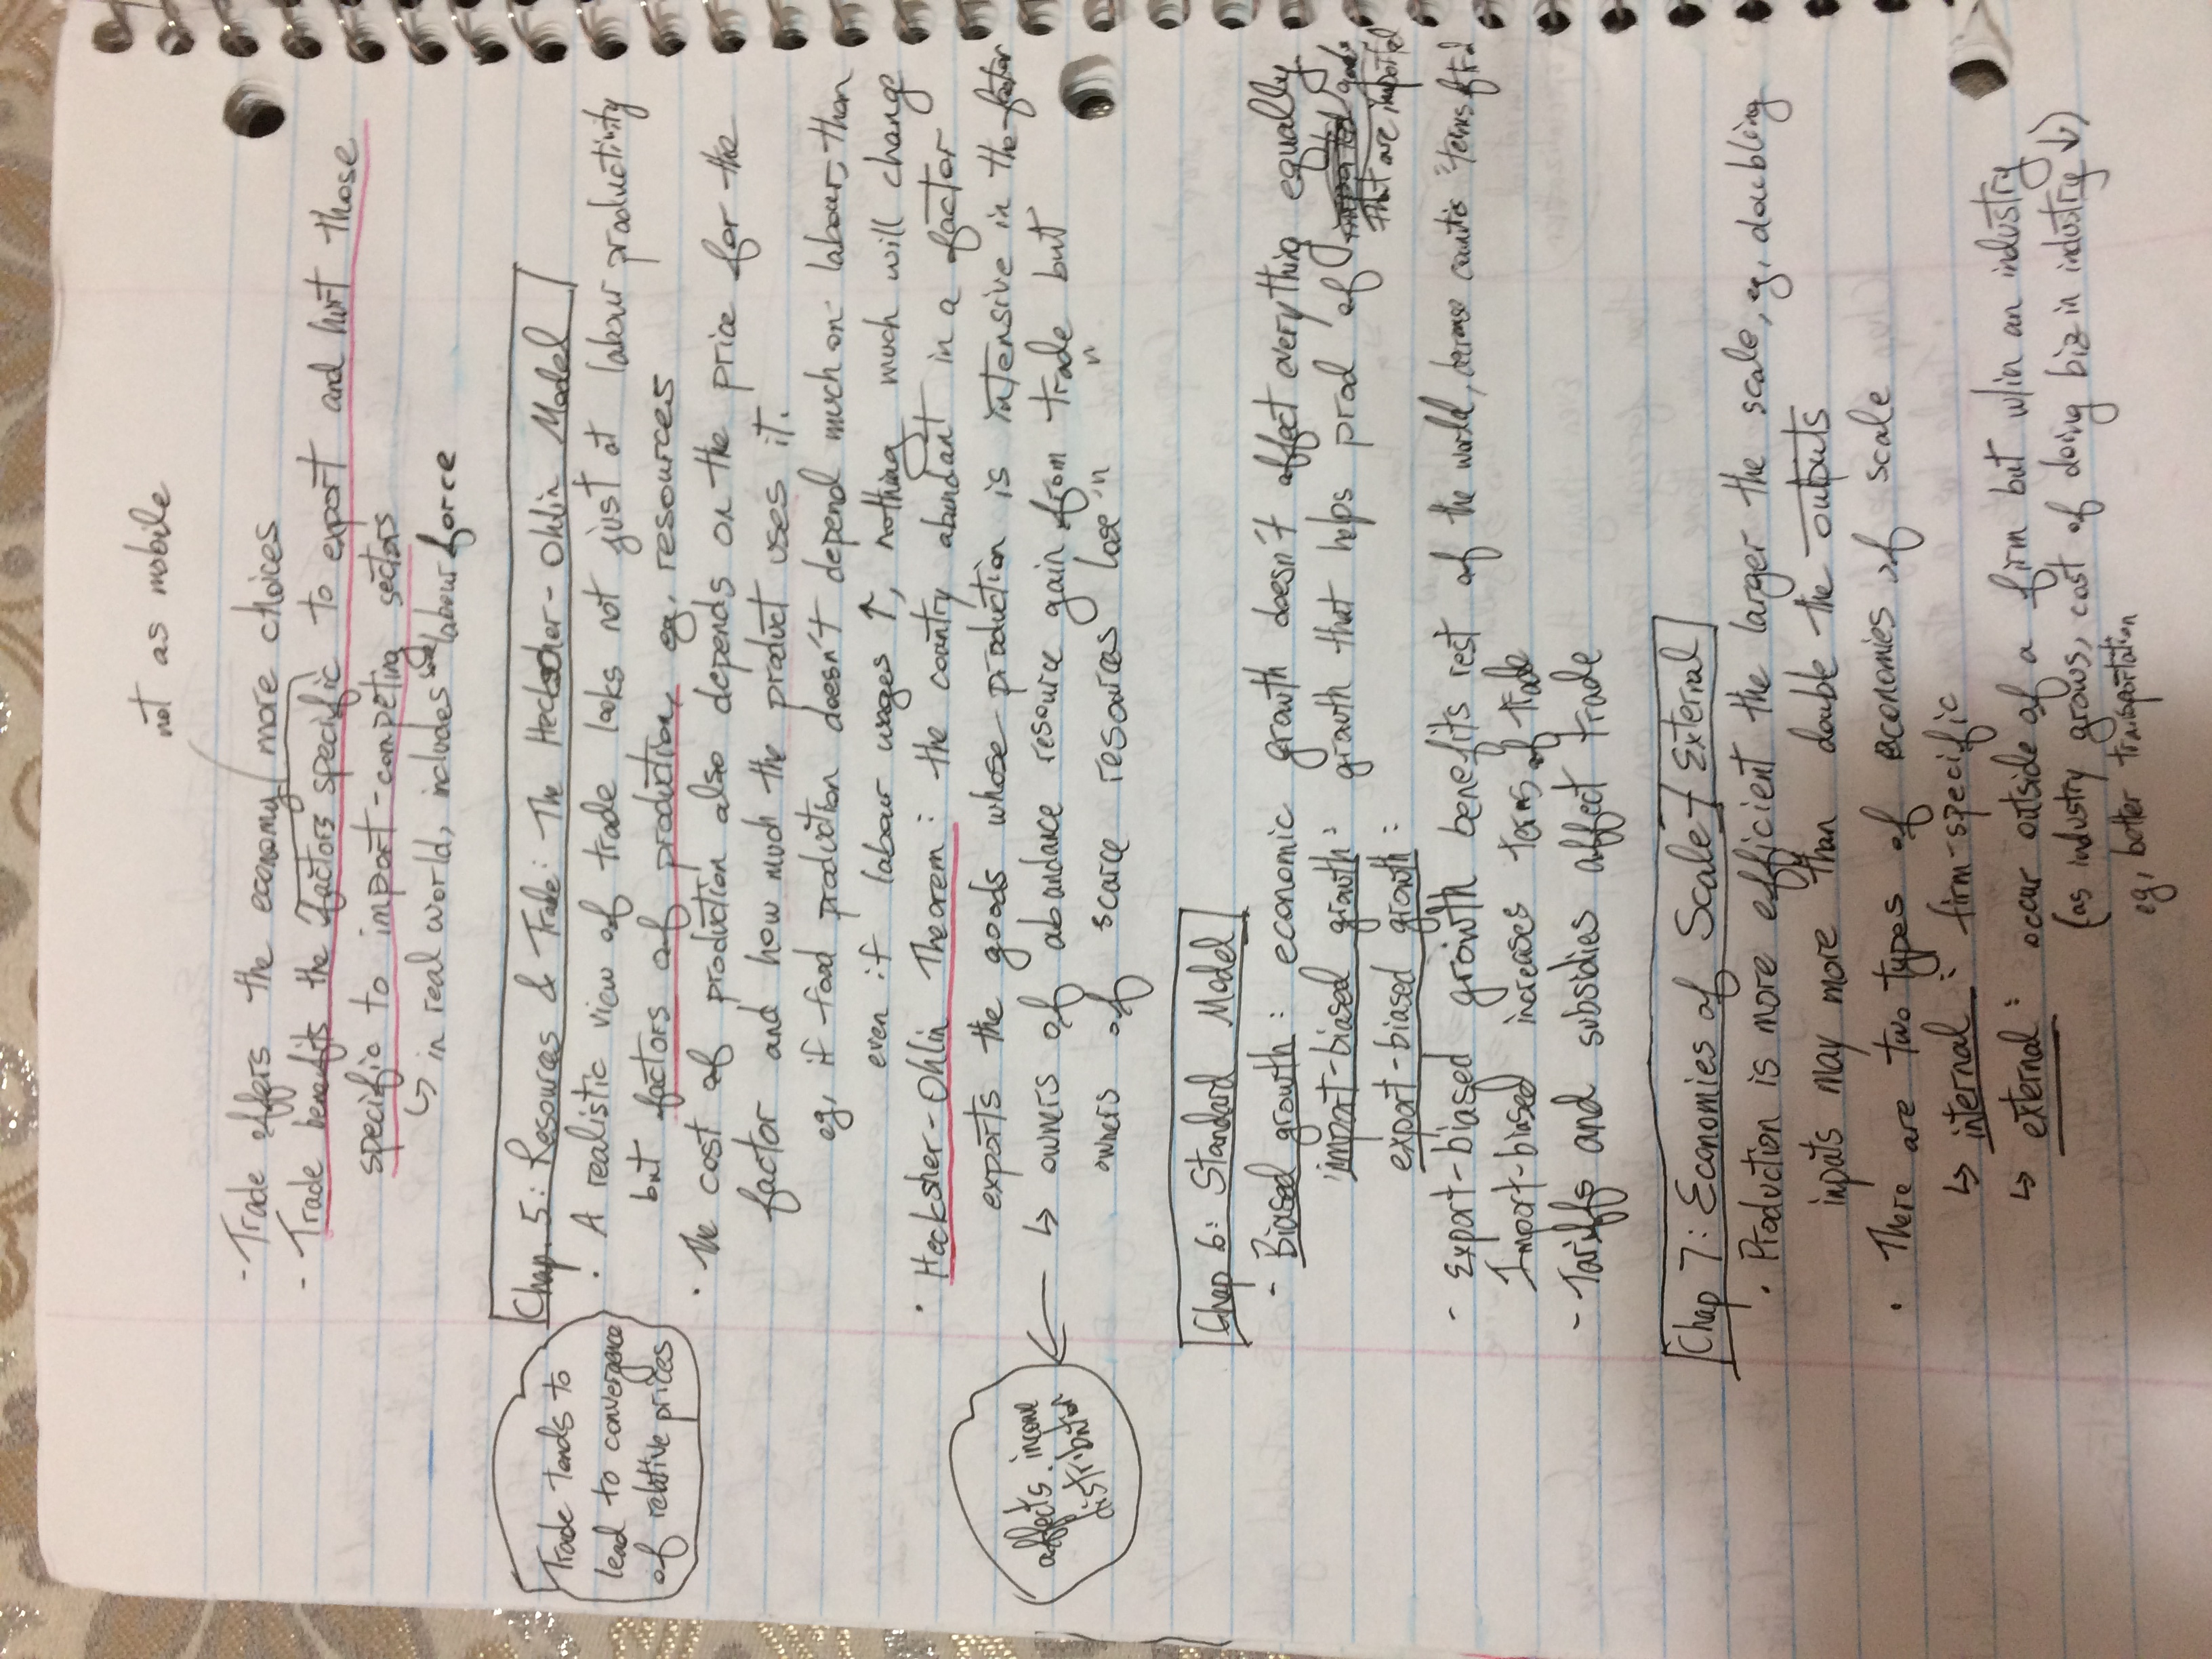 not as mobile
- Trade offers the economy more choices
- Trade benefits the factors specific to export and hurt those
specific to import-competing sectors
↳ in real world, includes some labour force
Chap. 5: Resources & Trade: The Hecksher-Ohlin Model
Trade tends to
lead to convergence
of relative prices
· A realistic view of trade looks not just at labour productivity
but factors of production, eg. resources
· The cost of production also depends on the price for the
factor and how much the product uses it.
eg, if food production doesn't depend much on labour, than
even if labour wages ↑, nothing much will change
· Hecksher-Ohlin Theorem: the country abundant in a factor
exports the goods whose production is intensive in the factor
affects income
distribution
← ↳ owners of abundance resource gain from trade but
owners of scarce resources lose " "
Chap 6: Standard Model
- Biased growth: economic growth doesn't affect everything equally
import-biased growth: growth that helps prod of goods
that are imported
export-biased growth:
- Export-biased growth benefits rest of the world, decrease "terms of trd
Import-biased increases terms of trade
- Tariffs and subsidies affect trade
Chap 7: Economies of Scale - External
· Production is more efficient the larger the scale, eg, doubling
inputs may more than double the outputs
· There are two types of economies of scale
↳ internal: firm-specific
↳ external: occur outside of a firm but w/in an industry
(as industry grows, cost of doing biz in industry ↓)
eg, better transportation